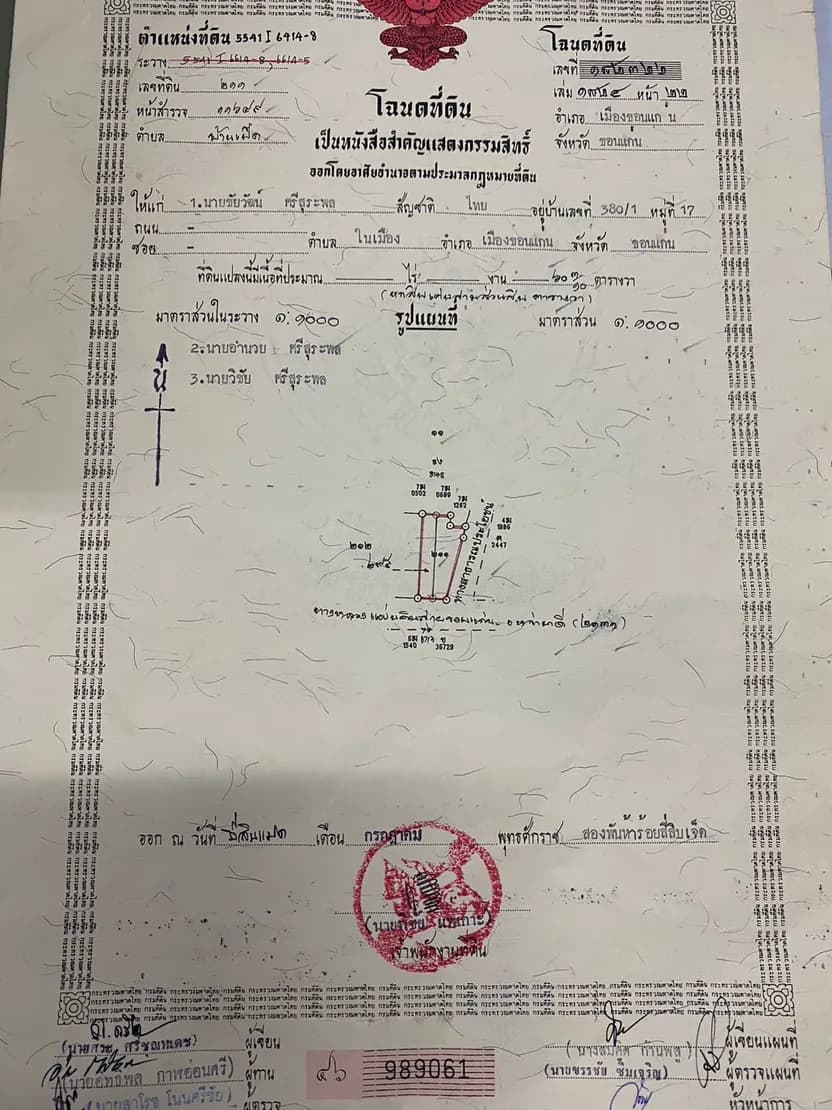 ตำแหน่งที่ดิน 5541 I 6414-8
ระวาง 5541 I 6614-8, 6614-5
เลขที่ดิน ๒๑๑
หน้าสำรวจ ๑๑๖๔๙
ตำบล บ้านเป็ด
โฉนดที่ดิน
เลขที่
เล่ม ๑๙๒๔ หน้า ๒๒
อำเภอ เมืองขอนแก่น
จังหวัด ขอนแก่น
โฉนดที่ดิน
เป็นหนังสือสำคัญแสดงกรรมสิทธิ์
ออกโดยอาศัยอำนาจตามประมวลกฎหมายที่ดิน
ให้แก่ 1.นายชัยวัฒน์ ศรีสุระพล สัญชาติ ไทย อยู่บ้านเลขที่ 380/1 หมู่ที่ 17
ถนน -
ซอย - ตำบล ในเมือง อำเภอ เมืองขอนแก่น จังหวัด ขอนแก่น
ที่ดินแปลงนี้มีเนื้อที่ประมาณ ไร่ งาน ตารางวา
มาตราส่วนในระวาง ๑:๑๐๐๐ รูปแผนที่ มาตราส่วน ๑:๑๐๐๐
2.นายอำนวย ศรีสุระพล
3.นายวิชัย ศรีสุระพล
น
๑๑
7ม 0502
7ม 0680
7ม 1262
๒๑๒
๒๑๑
2447
ทางสาธารณประโยชน์
1540
36729
ออก ณ วันที่ ยี่สิบแปด เดือน กรกฎาคม พุทธศักราช สองพันห้าร้อยสี่สิบเจ็ด
เจ้าพนักงานที่ดิน
ผู้เขียน
ผู้ทาน
(นายอิทธิพล ภาพอ่อนศรี)
(นายสาโรช โนนศรีชัย) ผู้ตรวจ
๔๖ 989061
ผู้เขียนแผนที่
(นายขรรชัย ซิ้มเจริญ) ผู้ตรวจแผนที่
หัวหน้าการ